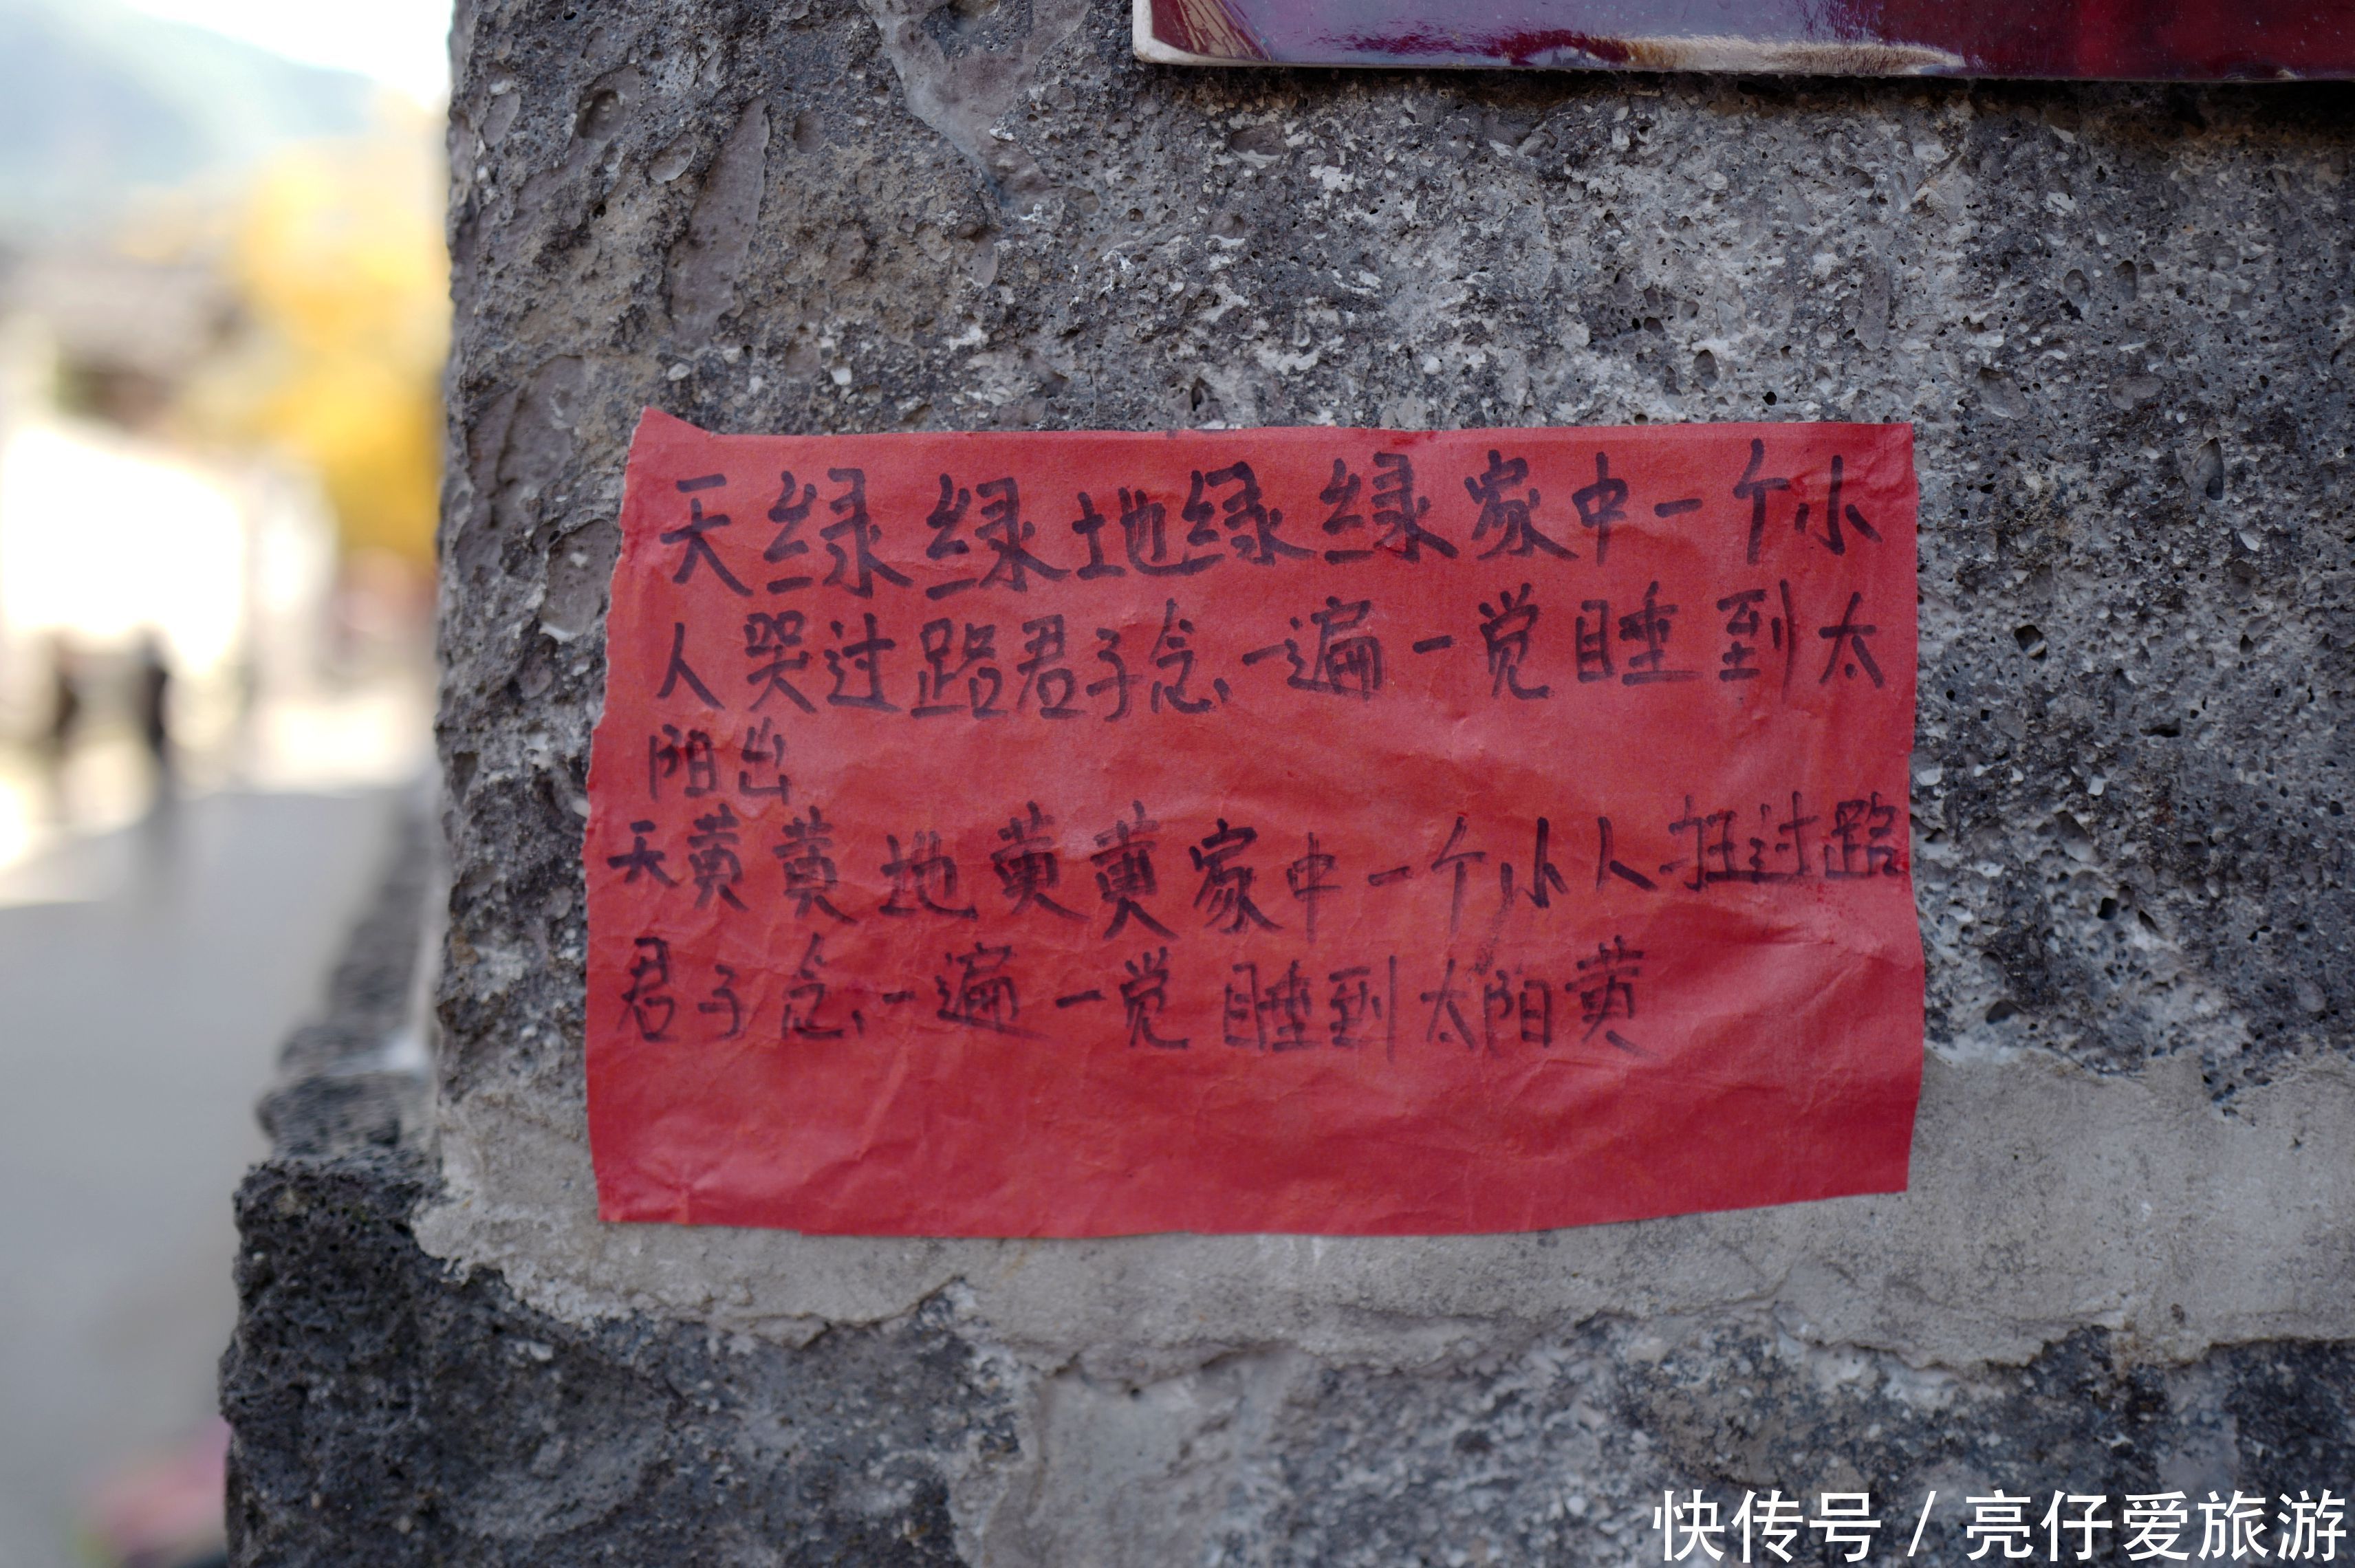 天绿绿地绿绿家中一个小
人哭过路君子念一遍一觉睡到太
阳出
天黄黄地黄黄家中一个小人狂过路
君子念一遍一觉睡到太阳黄
快传号 / 亮仔爱旅游